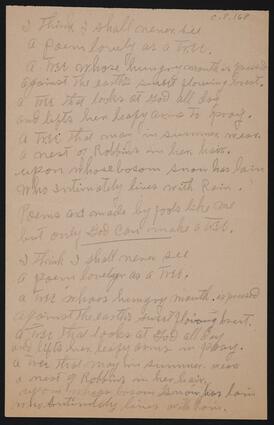 C.P. 168
I think I shall never see
a poem lovely as a tree.
a tree whose hungry mouth is pressed
against the earth's sweet flowing brest.
a tree that looks at God all day
and lifts her leafy arms to pray.
a tree that may in summer wear
a nest of Robbins in her hair.
upon whose bosom snow has lain
who intimately lives with Rain.
Poems are made by fools like me
but only God can make a tree.
I think I shall never see
a poem lovely as a tree.
a tree whoos hungry mouth is pressed
against the earth's sweet flowing brest.
a tree that looks at God all day
and lifts her leafy arms to pray.
a tree that may in summer wear
a nest of Robbins in her hair,
upon whose bosom snow has lain
who intimately lives with